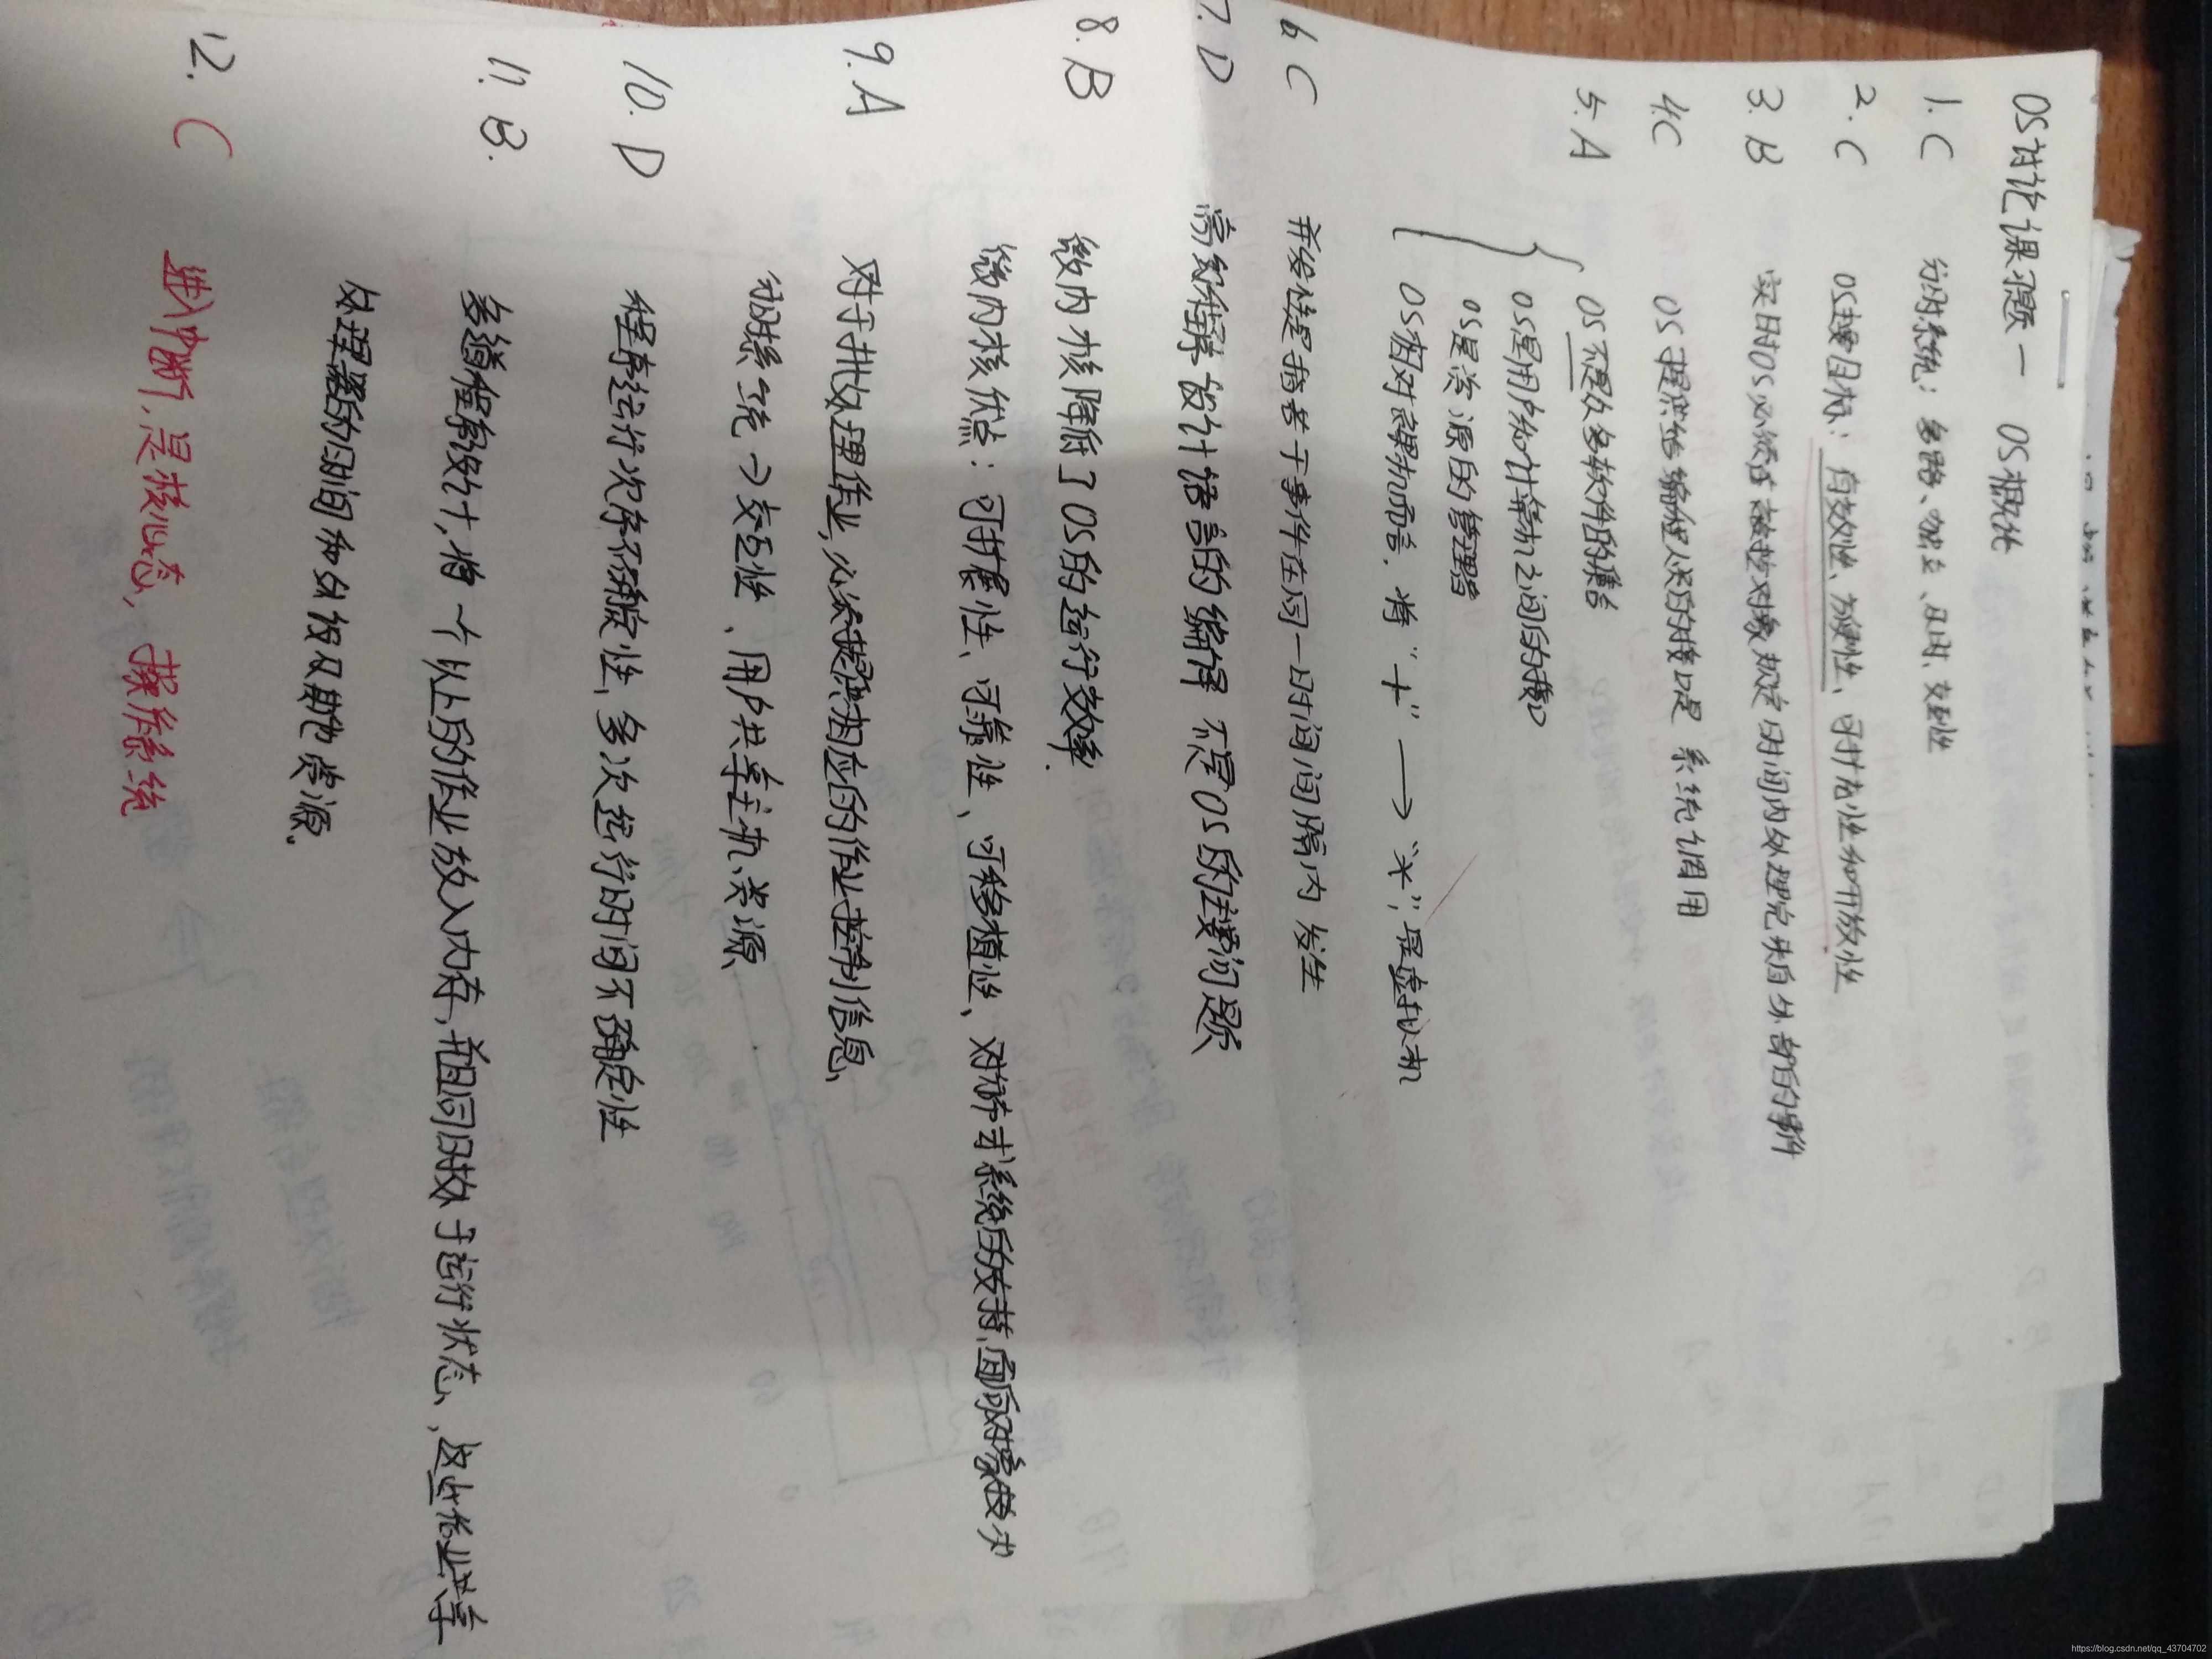 OS讨论课习题一 OS概论
1. C 分时系统：多路、独立、及时、交互性
2. C OS主要目标：有效性、方便性、可扩充性和开放性
3. B 实时OS必须在被控对象规定时间内处理完来自外部的事件
4. C OS提供给编程人员的接口是 系统调用
5. A OS不是众多软件的集合
OS是用户给计算机之间的接口
OS是资源的管理者
OS相对裸机而言，将“+”→“*”，是虚拟机
6 C 并发性是指若干事件在同一时间间隔内发生
7. D 高级程序设计语言的编译 不是OS的主要问题
8. B 微内核降低了OS的运行效率.
微内核优点：可扩展性、可靠性、可移植性、对分布式系统的支持、面向对象技术
9. A 对于批处理作业，必须提供相应的作业控制信息、
分时系统→交互性、用户共享主机、资源、
10. D 程序运行次序不确定性，多次运行时间不确定性
11. B. 多道程序设计，将一个以上的作业放入内存，并且同时处于运行状态，这些作业共享
处理器的时间和外设及其他资源.
12. C 进入中断，是核心态，操作系统
https://blog.csdn.net/qq_43704702